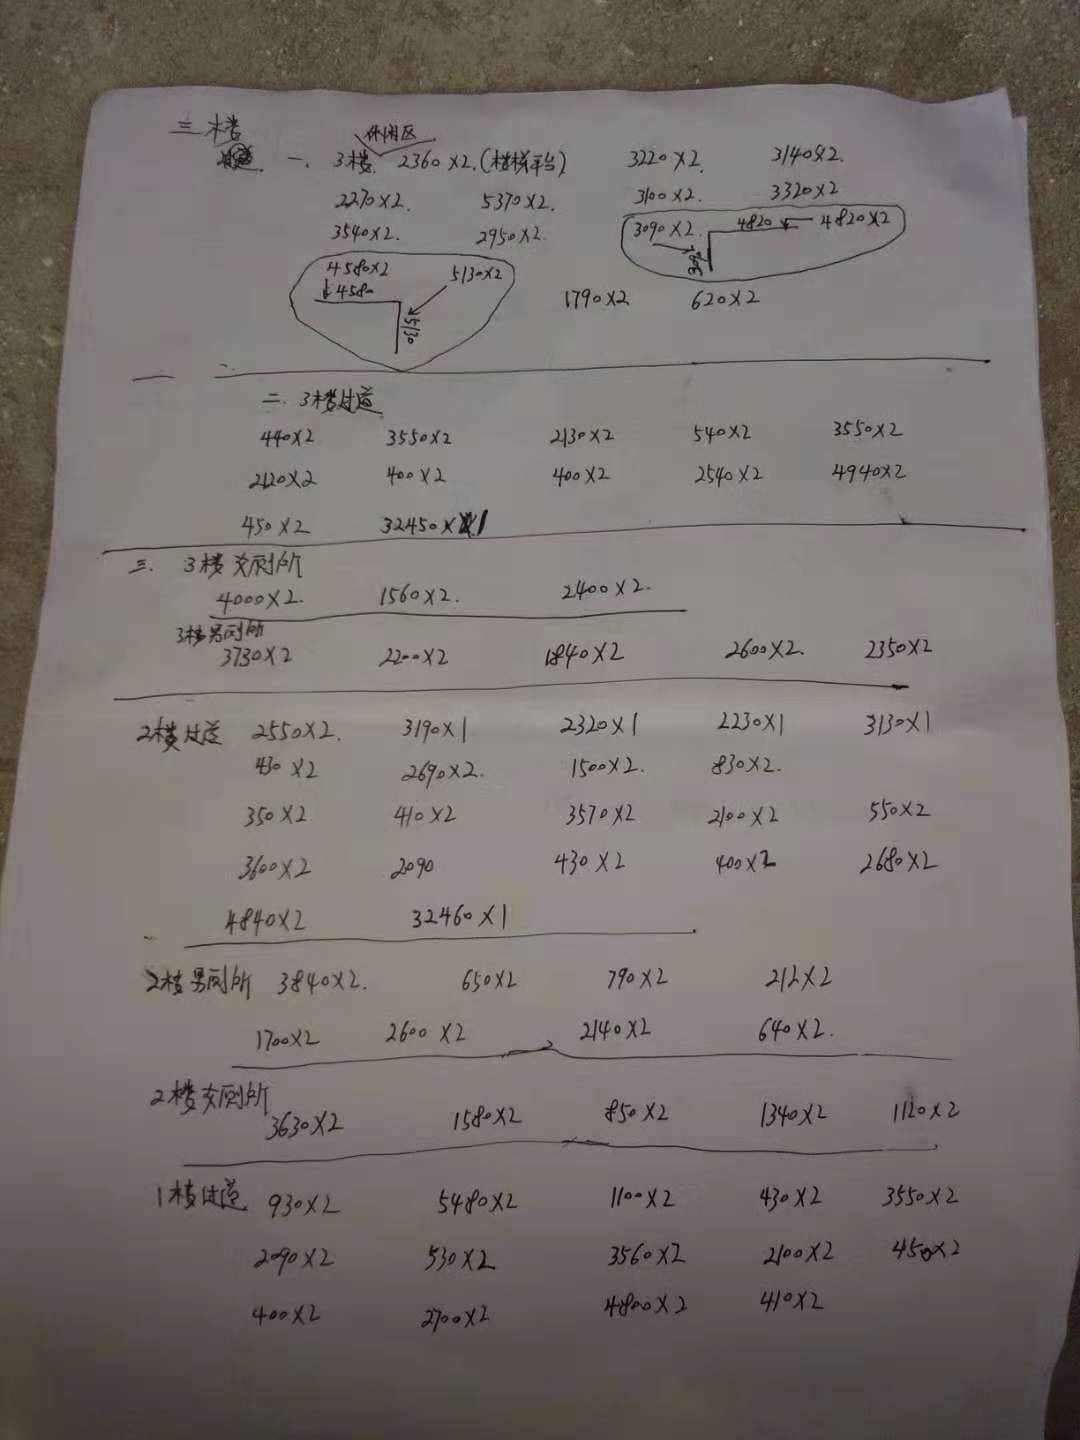 三楼
休闲区
一. 3楼. 2360X2.(楼梯平台) 3220X2. 3140X2.
2270X2. 5370X2. 3100X2. 3320X2
3540X2. 2950X2. 3090X2. 4820 4820X2
3090
4580X2 5130X2
4580 1790X2 620X2
5130
二. 3楼过道
440X2 3550X2 2130X2 540X2 3550X2
2120X2 400X2 400X2 2540X2 4940X2
450X2 32450X1
三. 3楼女厕所
4000X2. 1560X2. 2400X2.
3楼男厕所
3730X2 2200X2 1840X2 2600X2. 2350X2
2楼过道 2550X2. 3190X1 2320X1 2230X1 3130X1
430X2 2690X2. 1500X2. 830X2.
350X2 410X2 3570X2 2100X2 550X2
3600X2 2090 430X2 400X2 2680X2
4840X2 32460X1
2楼男厕所 3840X2. 650X2 790X2 212X2
1700X2 2600X2 2140X2 640X2.
2楼女厕所
3630X2 1580X2 850X2 1340X2 1120X2
1楼过道 930X2 5480X2 1100X2 430X2 3550X2
2090X2 530X2 3560X2 2100X2 450X2
400X2 2700X2 4800X2 410X2